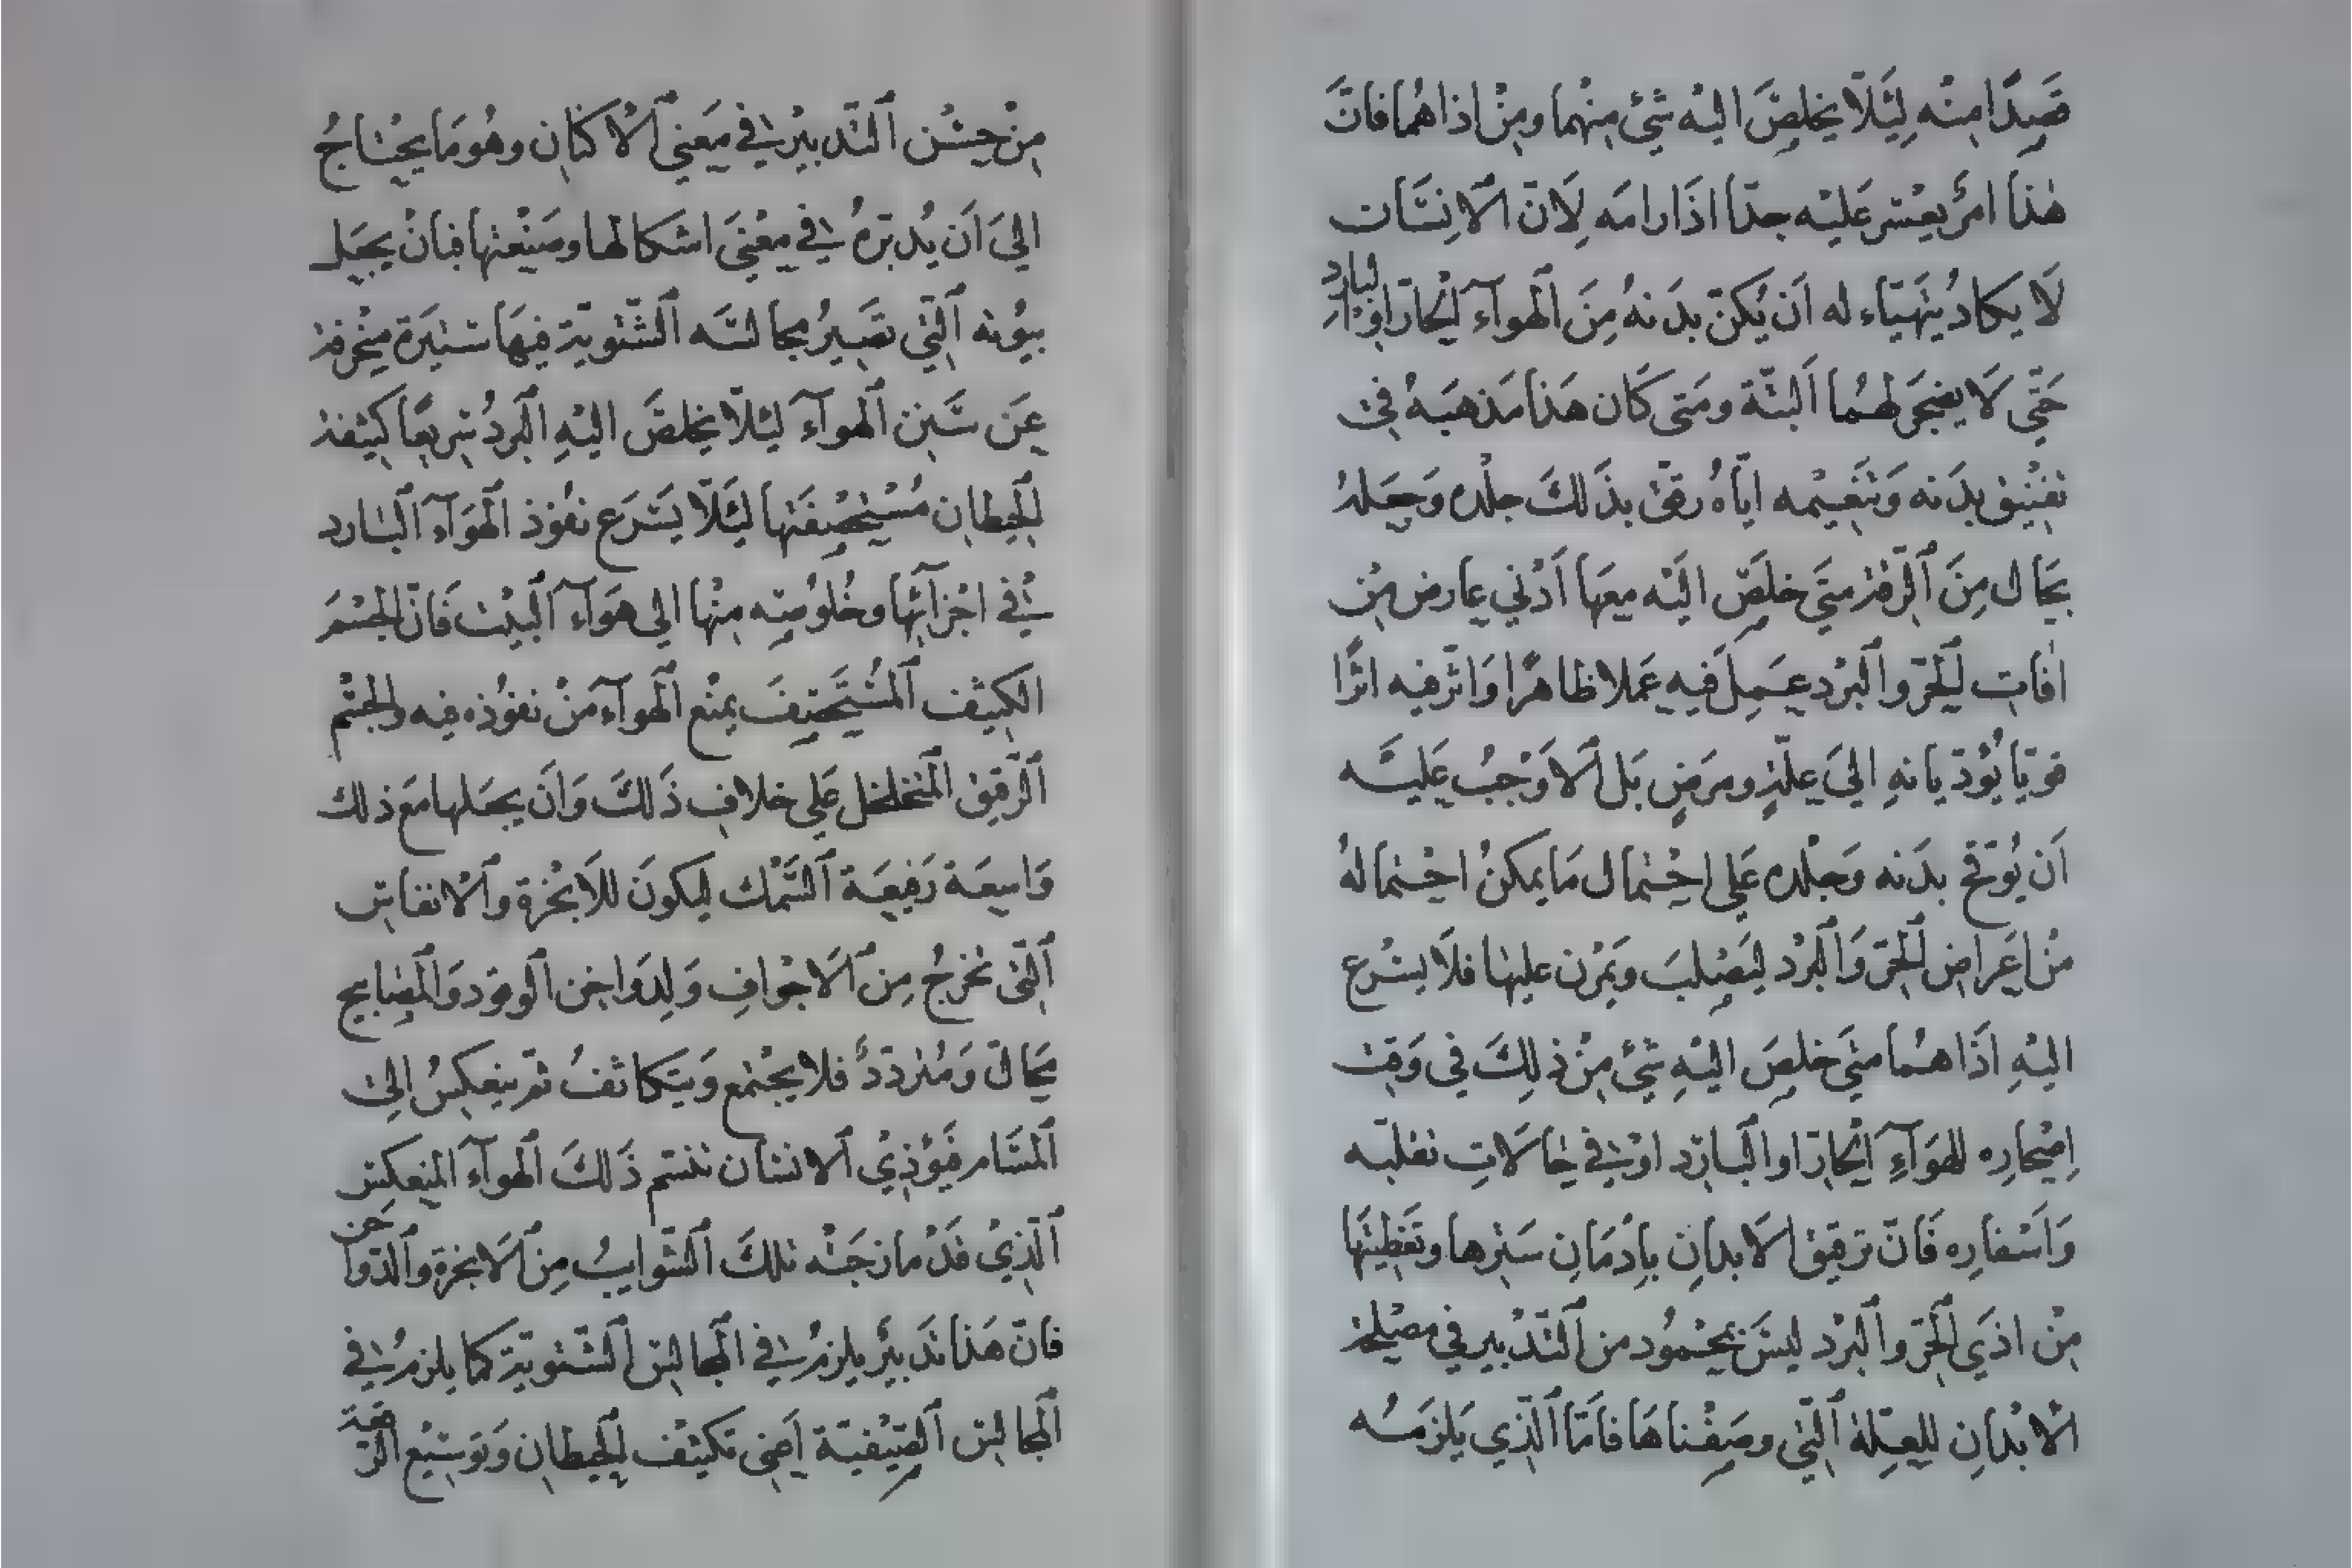 قصدا منه ليلا يخلص اليه شئ منهما ومن اذاهما فان
هذا امر يعسر عليه جدا اذا رامه لان الانسان
لا يكاد يتهياء له ان يكن بدنه من الهواء الحار او البارد
حتى لا يضحى لهما البتة ومتى كان هذا مذهبه في
تفنيق بدنه وتنعيمه اياه رقق بذلك جلده وجعله
بحال من الرقة متى خلص اليه معها ادنى عارض من
افات الحر والبرد عمل فيه عملا ظاهرا واثر فيه اثرا
قويا يؤديانه الى علة ومرض بل الاوجب عليه
ان يوقح بدنه وجلده على احتمال ما يمكن احتماله
من اعراض الحر والبرد ليصلب ويمرن عليها فلا يسرع
اليه اذاهما متى خلص اليه شئ من ذلك في وقت
اصحاره للهواء الحار او البارد او في حالات تقلبه
واسفاره فان ترقيق الابدان بادمان سترها وتغطيتها
من اذى الحر والبرد ليس بمحمود من التدبير في مصلحة
الابدان للعلة التي وصفناها فاما الذي يلزمه
من حسن التدبير في معنى الاكنان وهو ما يحتاج
الى ان يدبره في معنى اشكالها وصنعتها فبان يجعل
بيوته التي تصير مجالسه الشتوية فيها ستيرة منحرفة
عن سنن الهواء ليلا يخلص اليه البرد سريعا كثيفة
الحيطان مستحصفتها ليلا يسرع نفوذ الهواء البارد
في اجزائها وخلوصه منها الى هواء البيت فان الجسم
الكثيف المستحصف يمنع الهواء من نفوذه فيه والجسم
الرقيق المتخلخل على خلاف ذلك وان يجعلها مع ذلك
واسعة رفيعة السمك ليكون للابخرة والانفاس
التي تخرج من الاجواف ولدواخن الوقود والمصابيح
مجال ومتردد فلا يجتمع ويتكاثف ثم ينعكس الى
المشام فيؤذي الانسان تنسم ذلك الهواء المنعكس
الذي قد مازجته تلك الشوايب من الابخرة والدواخن
فان هذا تدبير يلزم في المجالس الشتوية كما يلزم في
المجالس الصيفية اعنى تكثيف الحيطان وتوسيع الرقعة